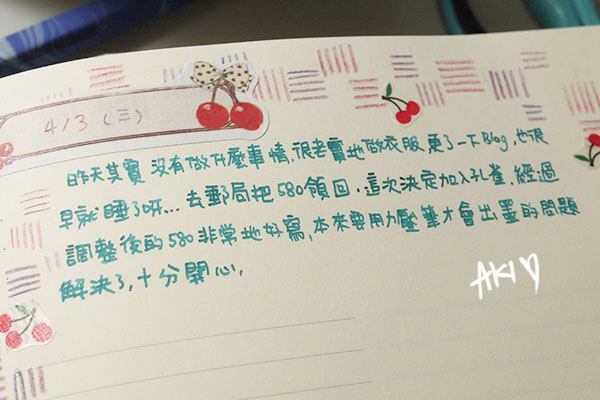 4/3 (三)
昨天其實 沒有做什麼事情,很老實地做衣服,更了一下Blog,也很
早就睡了呀... 去郵局把580領回,這次決定加入孔雀,經過
調整後的580非常地好寫,本來要用力壓筆才會出墨的問題
解決了,十分開心,
AKI♡